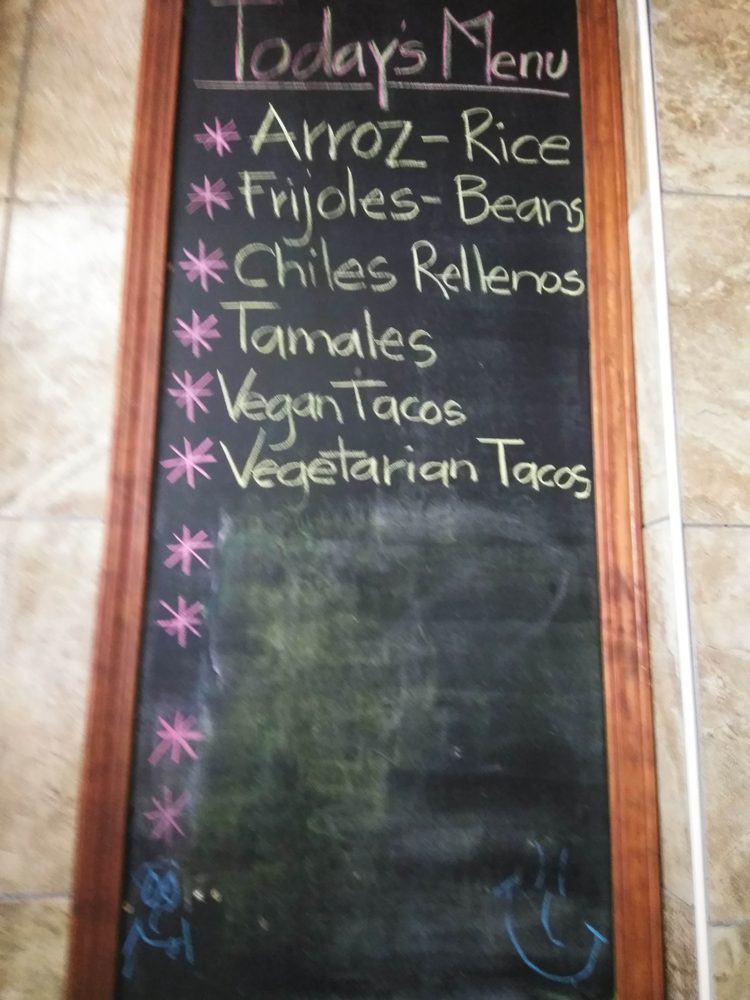 Today's Menu
Arroz - Rice
Frijoles - Beans
Chiles Rellenos
Tamales
Vegan Tacos
Vegetarian Tacos